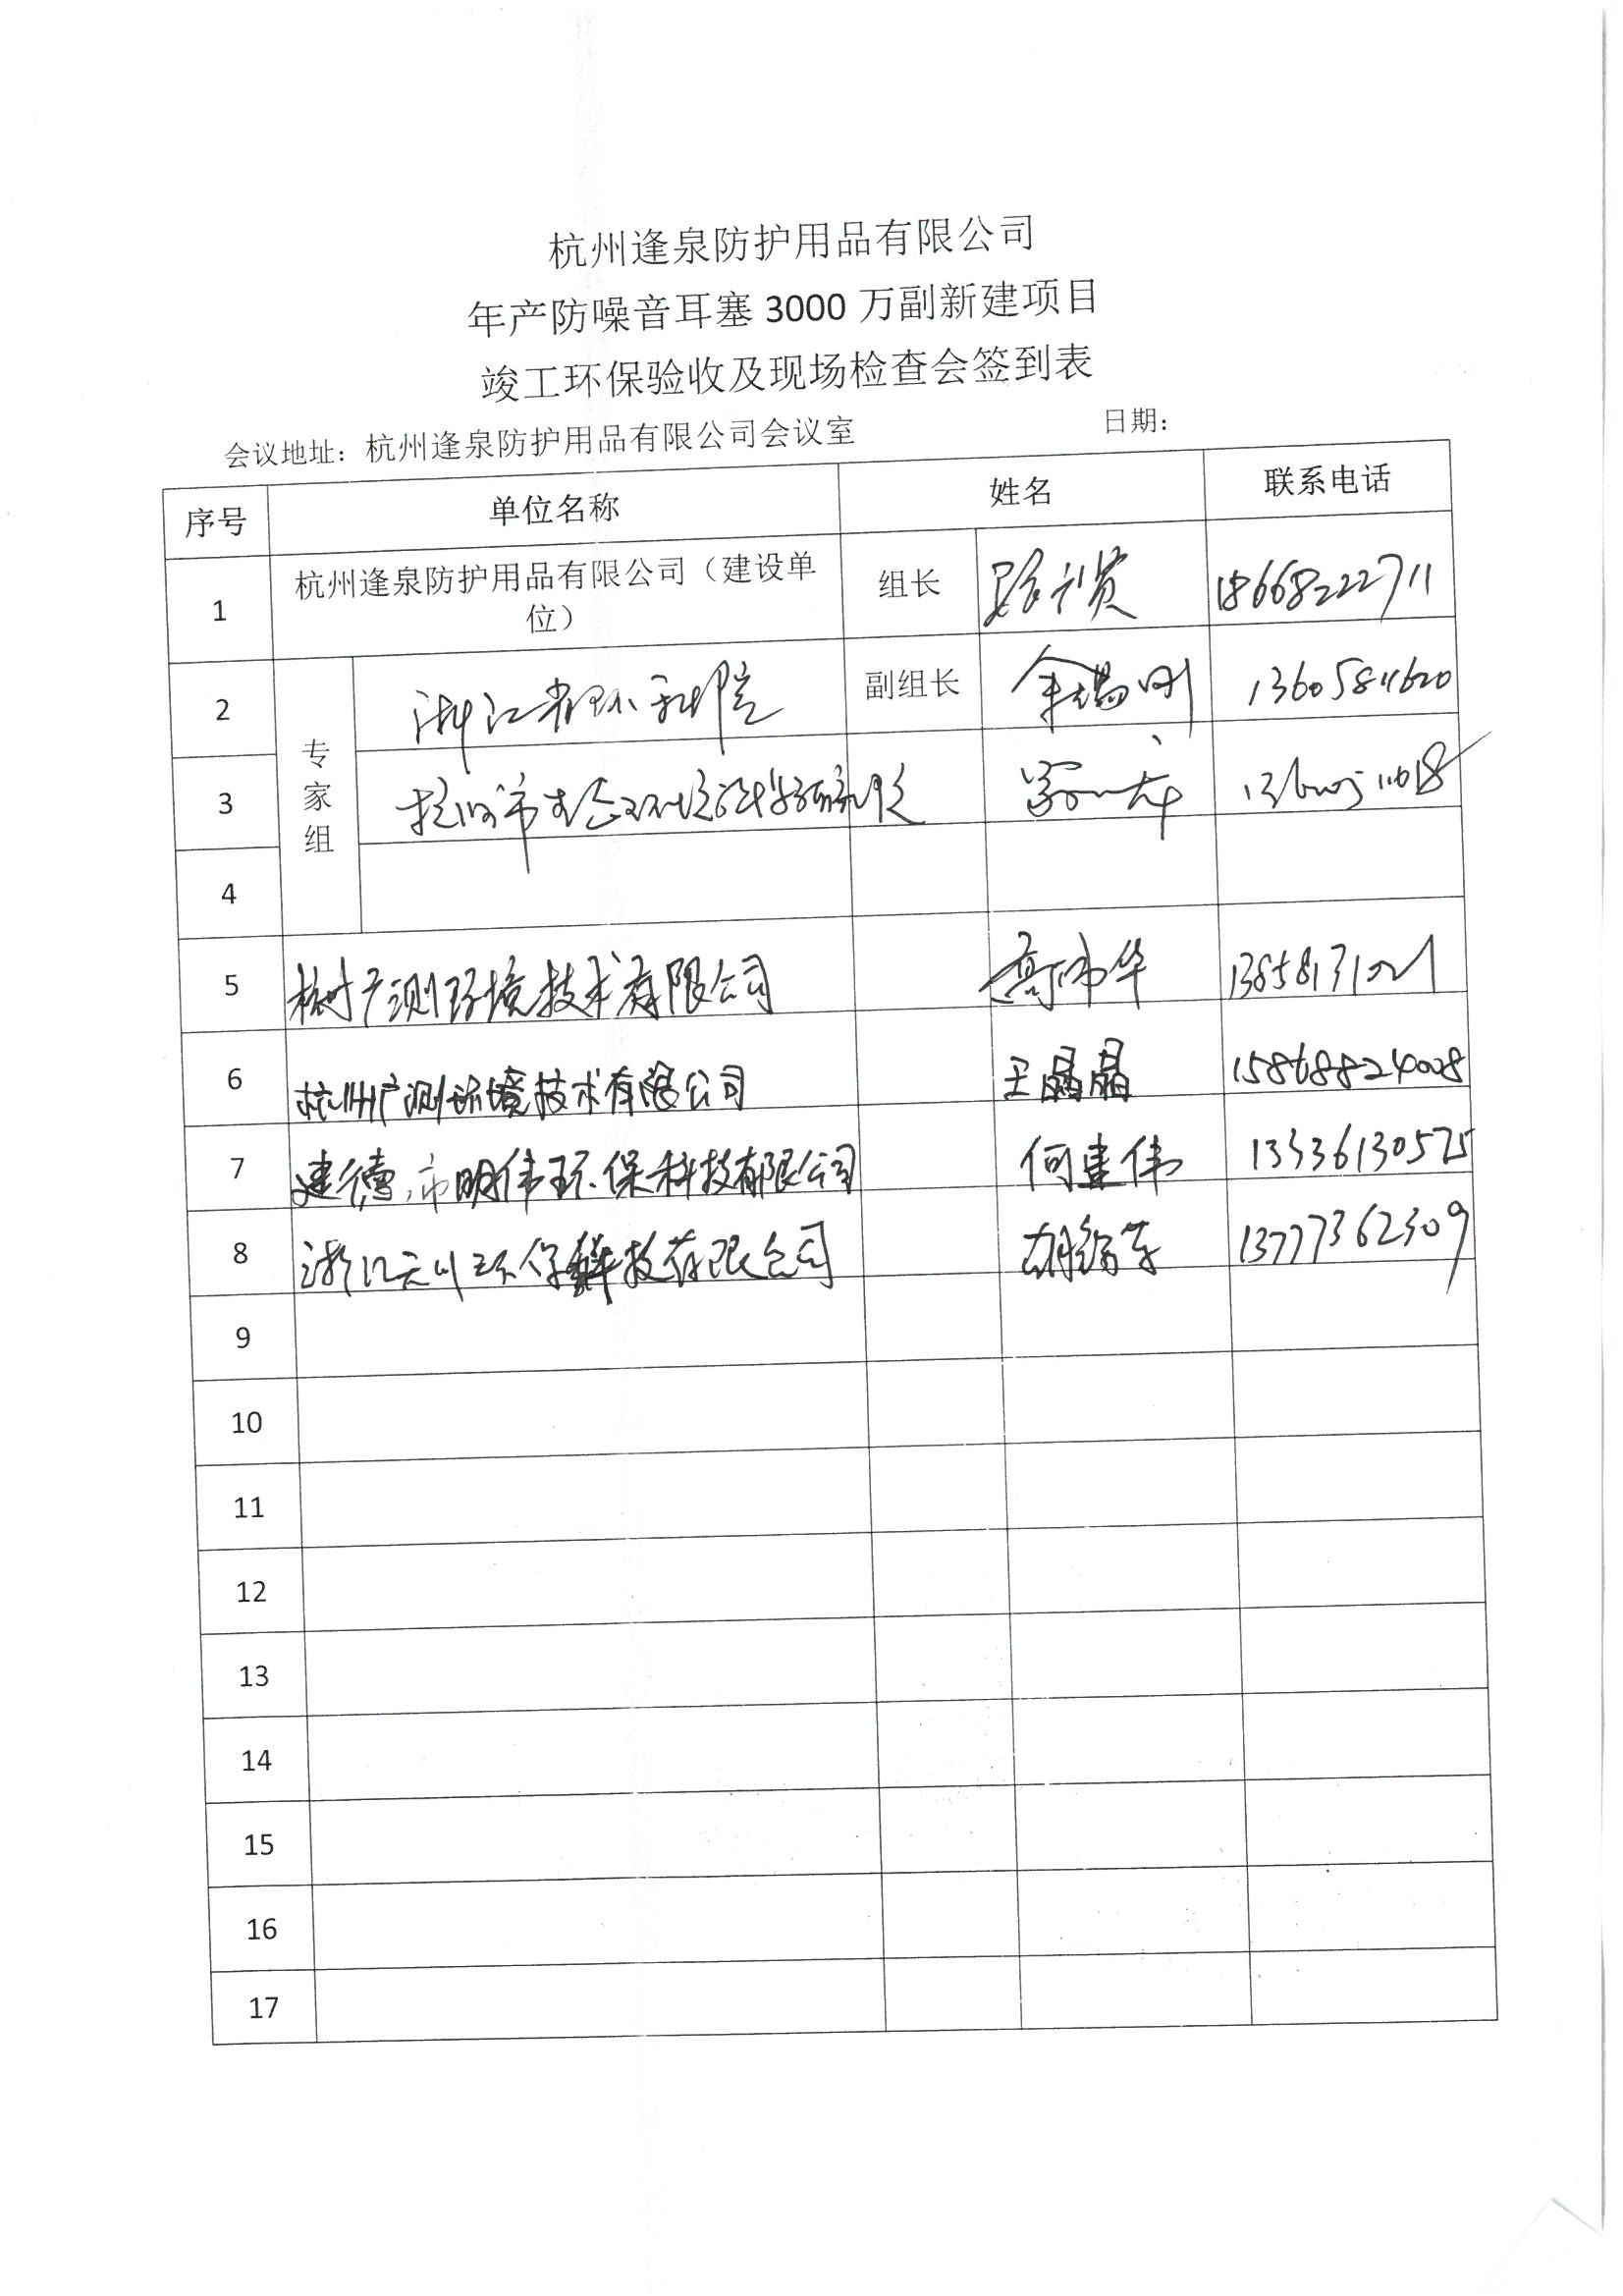 杭州逢泉防护用品有限公司
年产防噪音耳塞 3000 万副新建项目
竣工环保验收及现场检查会签到表
会议地址：杭州逢泉防护用品有限公司会议室 日期：
序号 单位名称 姓名 联系电话
1 杭州逢泉防护用品有限公司（建设单位） 组长 18668222711
专家组
2 浙江省环科院 副组长
3 杭州市生态环境科学研究院
4
5 杭州广测环境技术有限公司 高伟华
6 杭州广测环境技术有限公司 王晶晶 15868824008
7 建德市明伟环保科技有限公司 何建伟 13336130575
8 浙江天川环保科技有限公司 13777362309
9
10
11
12
13
14
15
16
17